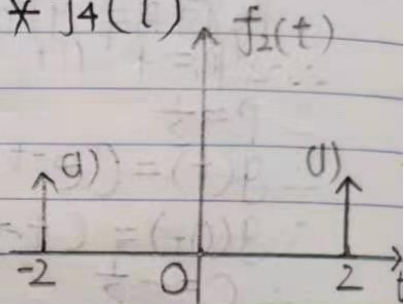 * f4(t)
f2(t)
(1) (1)
-2 0 2 t